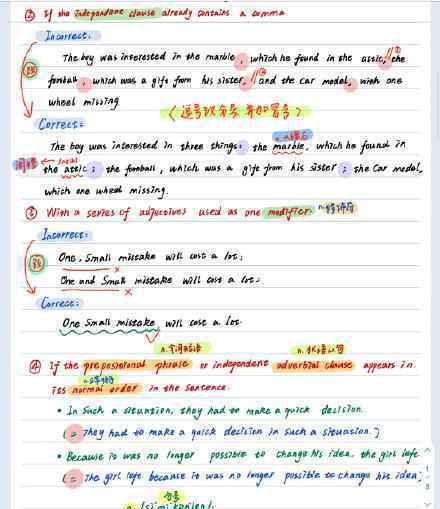 ② If the independent clause already contains a comma
Incorrect:
The boy was interested in the marble, which he found in the attic, the ①
football, which was a gift from his sister, ② and the car model, with one
wheel missing
〈逗号改分号 并加冒号〉
Correct:
The boy was interested in three things: the marble, which he found in
the attic; the football, which was a gift from his sister; the car model,
which one wheel missing.
③ With a series of adjectives used as one modifier. n.修饰语
Incorrect:
One, small mistake will cost a lot.
One and small mistake will cost a lot.
Correct:
One small mistake will cost a lot.
n.介词短语 n.状语从句
④ If the prepositional phrase or independent adverbial clause appears in
its normal order in the sentence.
• In such a situation, they had to make a quick decision.
(= They had to make a quick decision in such a situation.)
• Because it was no longer possible to change his idea, the girl left
(= The girl left because it was no longer possible to change his idea,
分号